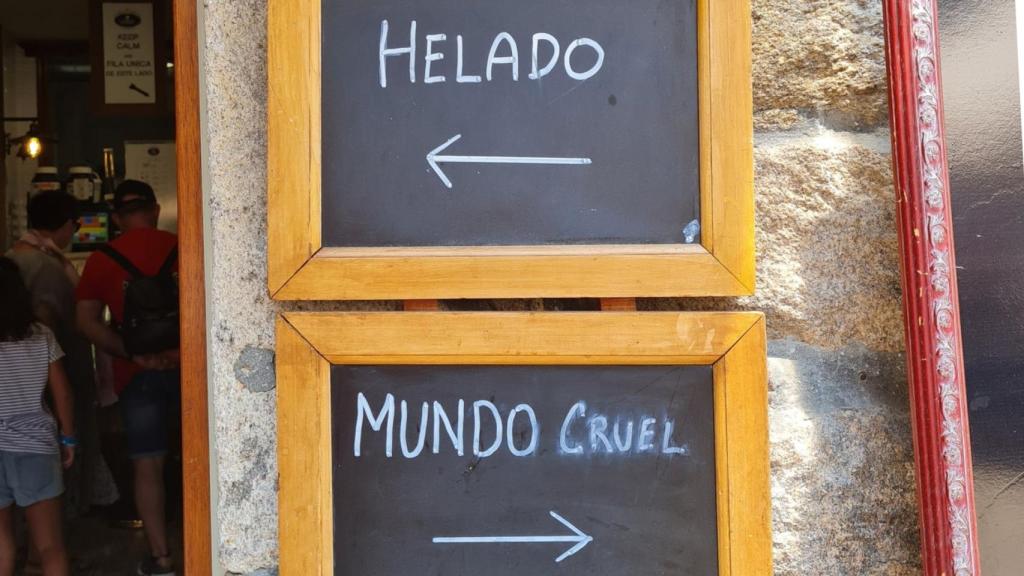 KEEP
CALM
AND
FILA UNICA
DE ESTE LADO
HELADO
MUNDO CRUEL